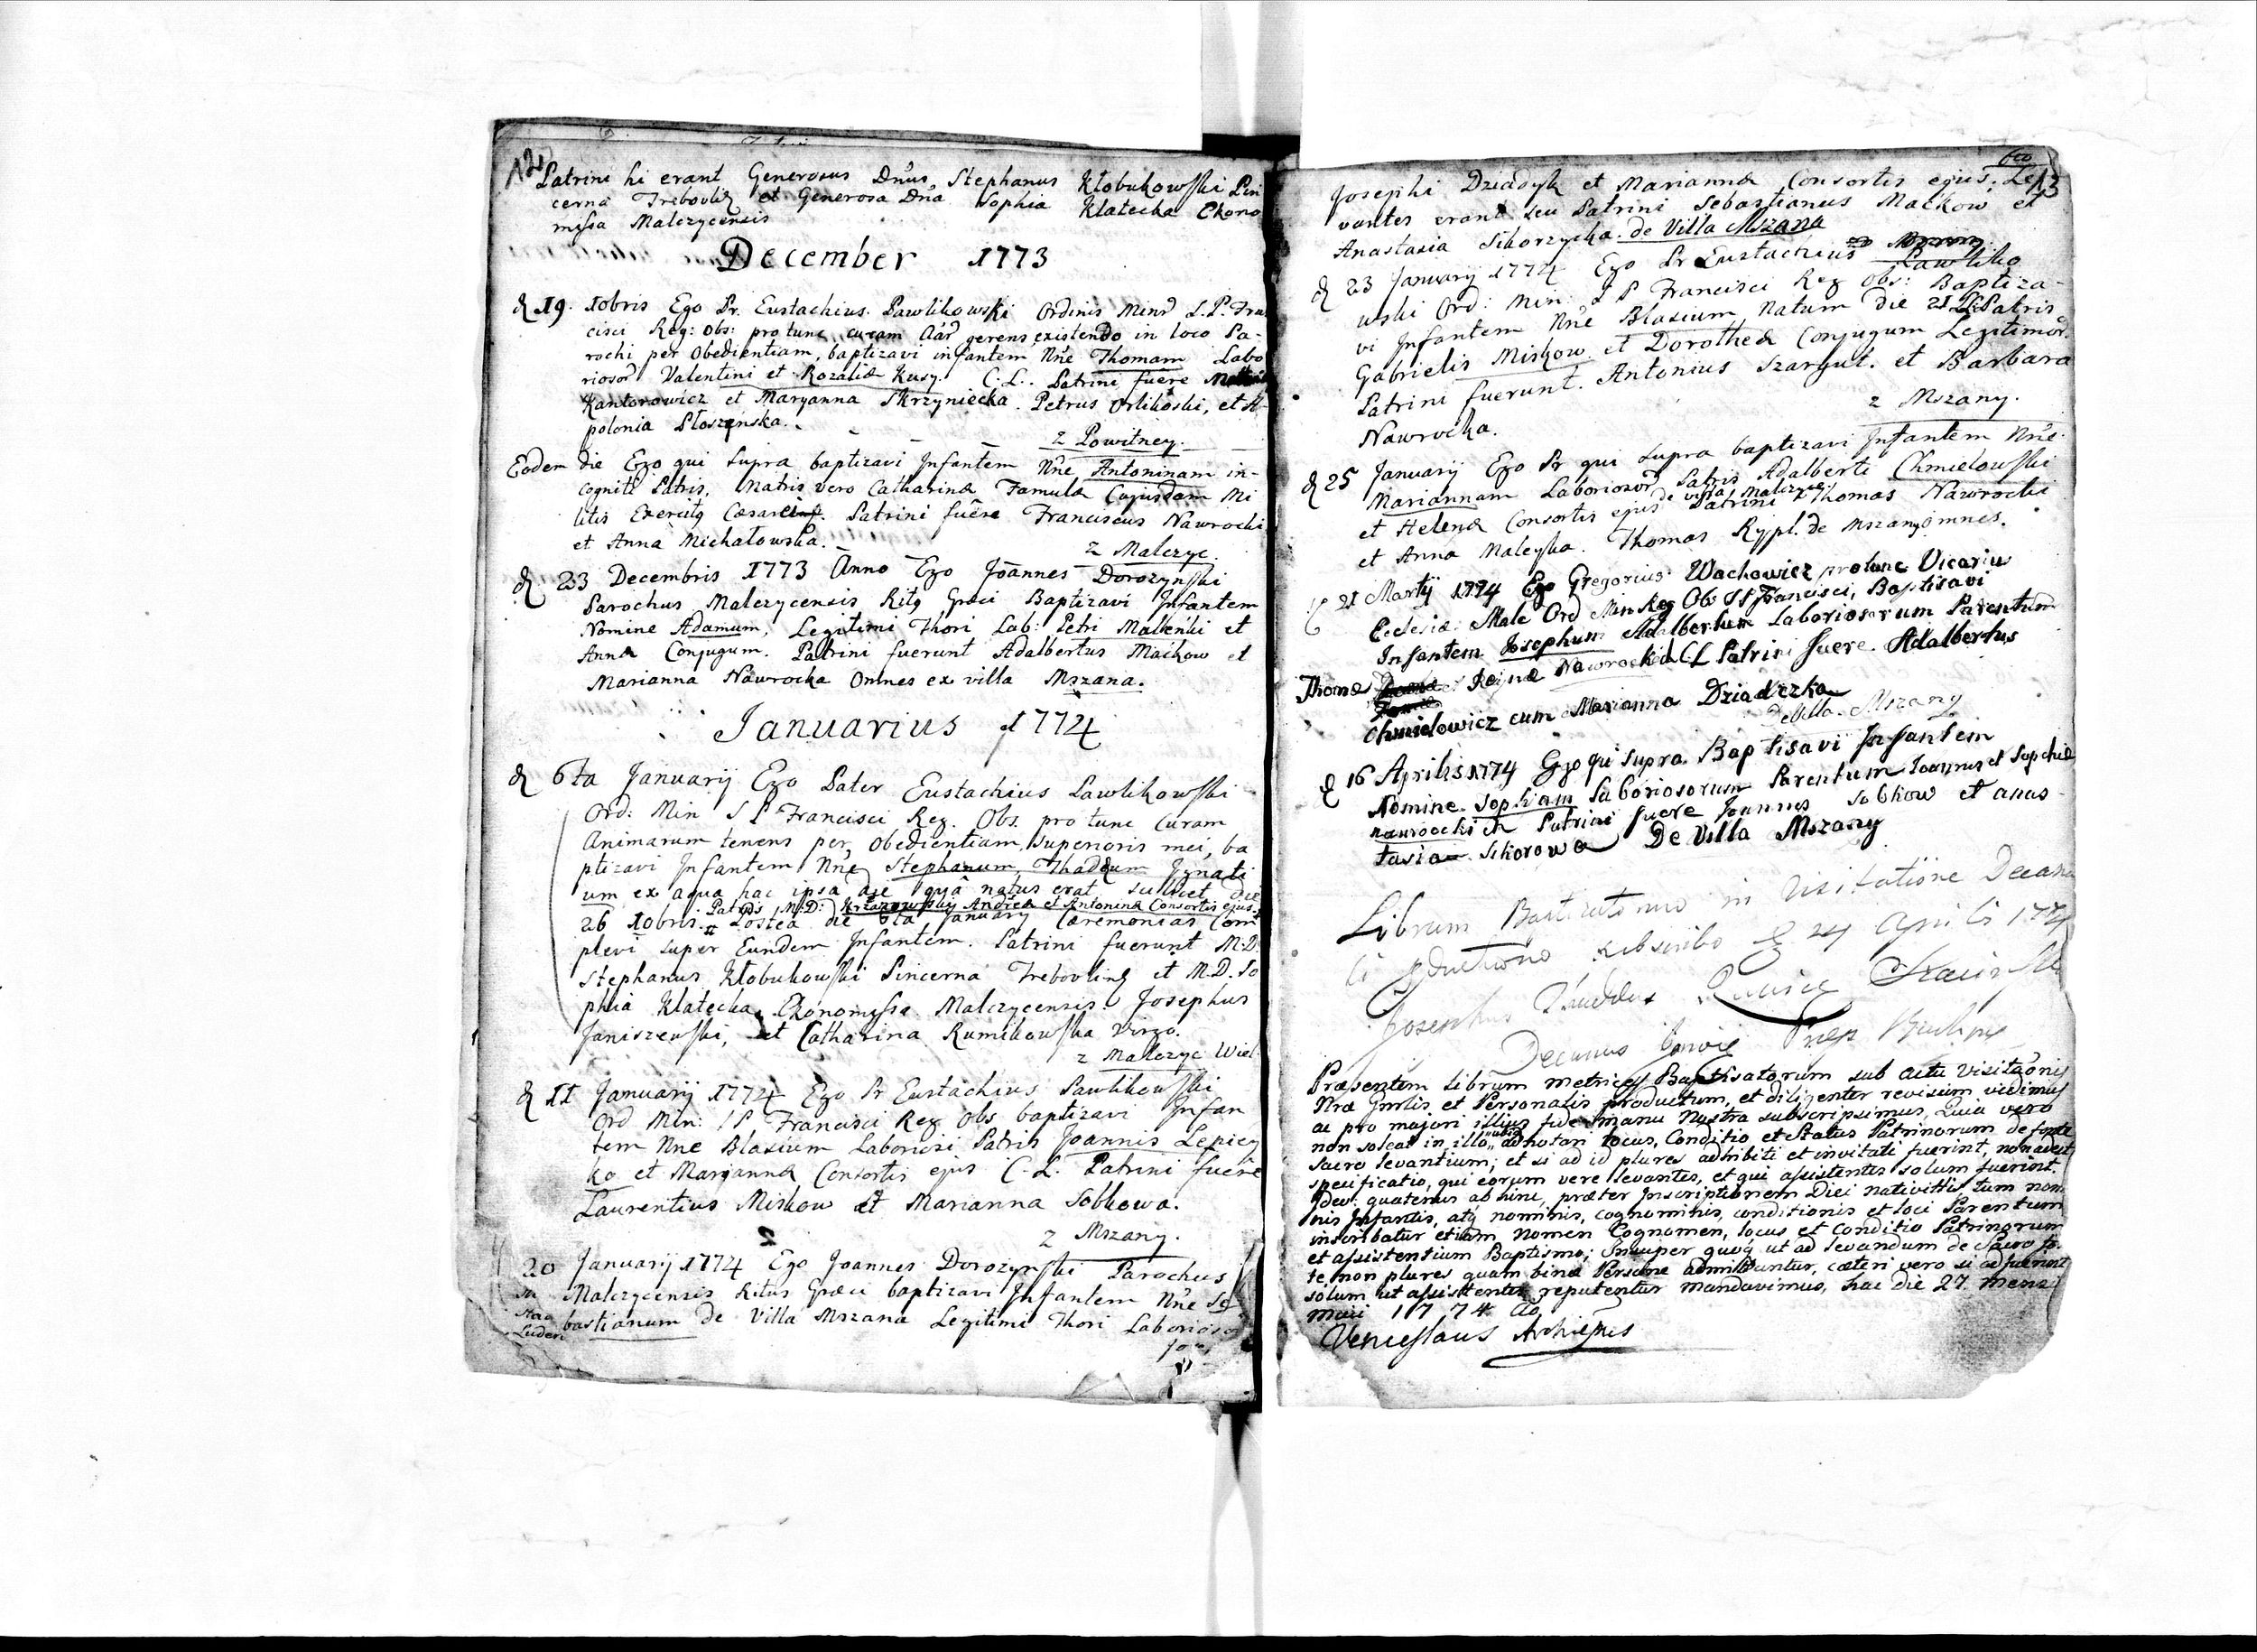 12
Patrini hi erant Generosus Dnus Stephanus Kłobukowski Pin
cerna Trebovliæ et Generosa Dna Sophia Klatecka Ekono
missa Malczycensis
December 1773
d 19. 10bris Ego Pr. Eustachius Pawlikowski Ordinis Minr S.P. Fran
cisci Reg: Obs: pro tunc curam aãr gerens existendo in loco Pa-
rochi per Obedientiam, baptizavi infantem Nne Thomam Labo
riosor Valentini et Rozaliæ Kusy. C.L. Patrini fuere
Kantorowicz et Maryanna Skrzyniecka. Petrus Orlikoski, et A-
polonia
z Powitney.
Eodem die Ego qui supra baptizavi Infantem Nne Antoninam in-
cogniti Patris, Matris vero Catharinæ Famulæ Cujusdam Mi
litis Exercitg Patrini fuere Franciscus Nawrocki
et Anna Michałowska.
z Malczyc.
d 23 Decembris 1773 Anno Ego Joannes Dorozynski
Parochus Malczycensis Ritg Græci Baptizavi Infantem
Nomine Adamum, Legitimi Thori Lab: Petri et
Annæ Conjugum. Patrini fuerunt Adalbertus Maćkow et
Marianna Nawrocka Omnes ex villa Mszana.
Januarius 1774
d 6ta Januarij Ego Pater Eustachius Pawlikowski
Ord: Min S P Francisci Reg. Obs. pro tunc Curam
Animarum tenens per Obedientiam Superioris mei, ba
ptizavi Infantem Nne Stephanum, Thadæum Ignati
um ex aqua hac ipsa die qua natus erat scilicet die
Patris M.D: Andreæ et Antoninæ Consortis ejus
26 10bris. Postea die 6ta January Cæremonias Com
plevi super Eundem Infantem. Patrini fuerunt M.D.
Stephanus Kłobukowski Pincerna Trebovling et M.D. So
phia Klatecka Ekonomissa Malczycensis. Josephus
Janiszewski, et Catharina Rumikowska Virgo.
z Malczyc Wiel
d 11 Januarij 1774 Ego Pr Eustachius Pawlikowski
Ord Min: S P Francisci Reg Obs baptizavi Infan
tem Nne Blasium Laboriosi Patris Joannis Lepicy
ko et Maryannæ Consortis ejus C.L. Patrini fuere
Laurentius Miskow et Marianna Sobkowa.
z Mszany.
20 Januarij 1774 Ego Joannes Dorozynski Parochus
Malczycensis Ritus Græci baptizavi Infantem Nne Se
bastianum de Villa Mszana Legitimi Thori Laborioso
13
Josephi Dziadyk et Mariannæ Consortis ejus. Le
vantes erant seu Patrini Sebastianus Maćkow et
Anastasia Sikorzycka de Villa Mszana
d 23 Januarij 1774 Ego Pr Eustachius Pawliko
wski Ord: Min: S P Francisci Reg Obs: Baptiza-
vi Infantem Nne Blasium natum die 21 Patris
Gabrielis Miskow et Dorotheæ Conjugum Legitimor.
Patrini fuerunt. Antonius Szargut. et Barbara
Nawrocka.
z Mszany.
d 25 Januarij Ego Pr qui supra baptizavi Infantem Nne
Mariannam Laboriosor Patris Adalberti Chmielowski
et Helenæ Consortis ejus de villa Malczyc Patrini Thomas Nawrocki
et Anna Thomas Rypl. de Mszany omnes.
d 21 Martij 1774 Ego Gregorius Wachowicz protunc Vicariu
Eclesiæ Male Ord Min Reg Ob S P Francisci, Baptisavi
Infantem Josephum Adalbertum Laboriosorum Parentum
Thomæ et Reginæ Nawrockich C L Patrini fuere. Adalbertus
Chmielowicz cum Marianna Dziadczka
de Villa Mszany
d 16 Aprilis 1774 Ego qui supra Baptisavi Infantem
Nomine Sophiam Laboriosorum Parentum Joannis et Sophiæ
Nawrocki ch Patrini fuere Joannes Sobkow et anas
tasia Sikorowa De Villa Mszany
Librum Baptizatorum in Visitatione Decana
li subscribo d 24 Aprilis 1774
Josephus
Decanus
Præsentem Librum metrices Baptisatorum sub actu Visitaonis
Nræ Gnrlis et Personalis productum, et diligenter revisum vidimus
ac pro majori illius fide manu Nostra subscripsimus, Quia vero
non soleat in illo adnotari locus, Conditio et Status Patrinorum de fonte
sacro levantium; et si ad id plures adhibiti et invitati fuerint, non adest
specificatio, qui eorum vere levantes, et qui assistentes solum fuerint.
Ideo: quatenus ab hinc, præter Inscriptionem Diei nativittis, tum nom
nis Infantis, atq nominis, cognominis, conditionis et loci Parentum
inscribatur etiam Nomen Cognomen, locus et Conditio Patrinorum
et assistentium Baptismo; Insuper quoq ut ad levandum de Sacro fo
te, non plures quam binæ Personæ admittuntur, cæteri vero si adfuerint
solum ut assistentes reputentur mandavimus, hac die 27 mens
Maii 1774 Ao
Venceslaus Archiepus